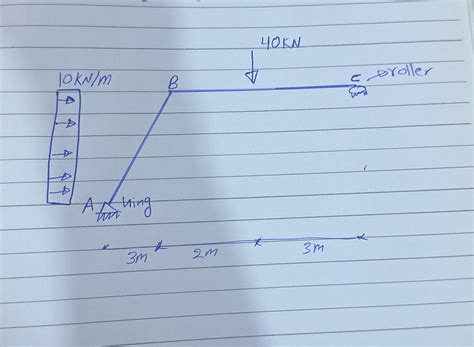 40KN
10KN/m
B
C
roller
A
Hing
3m
2m
3m